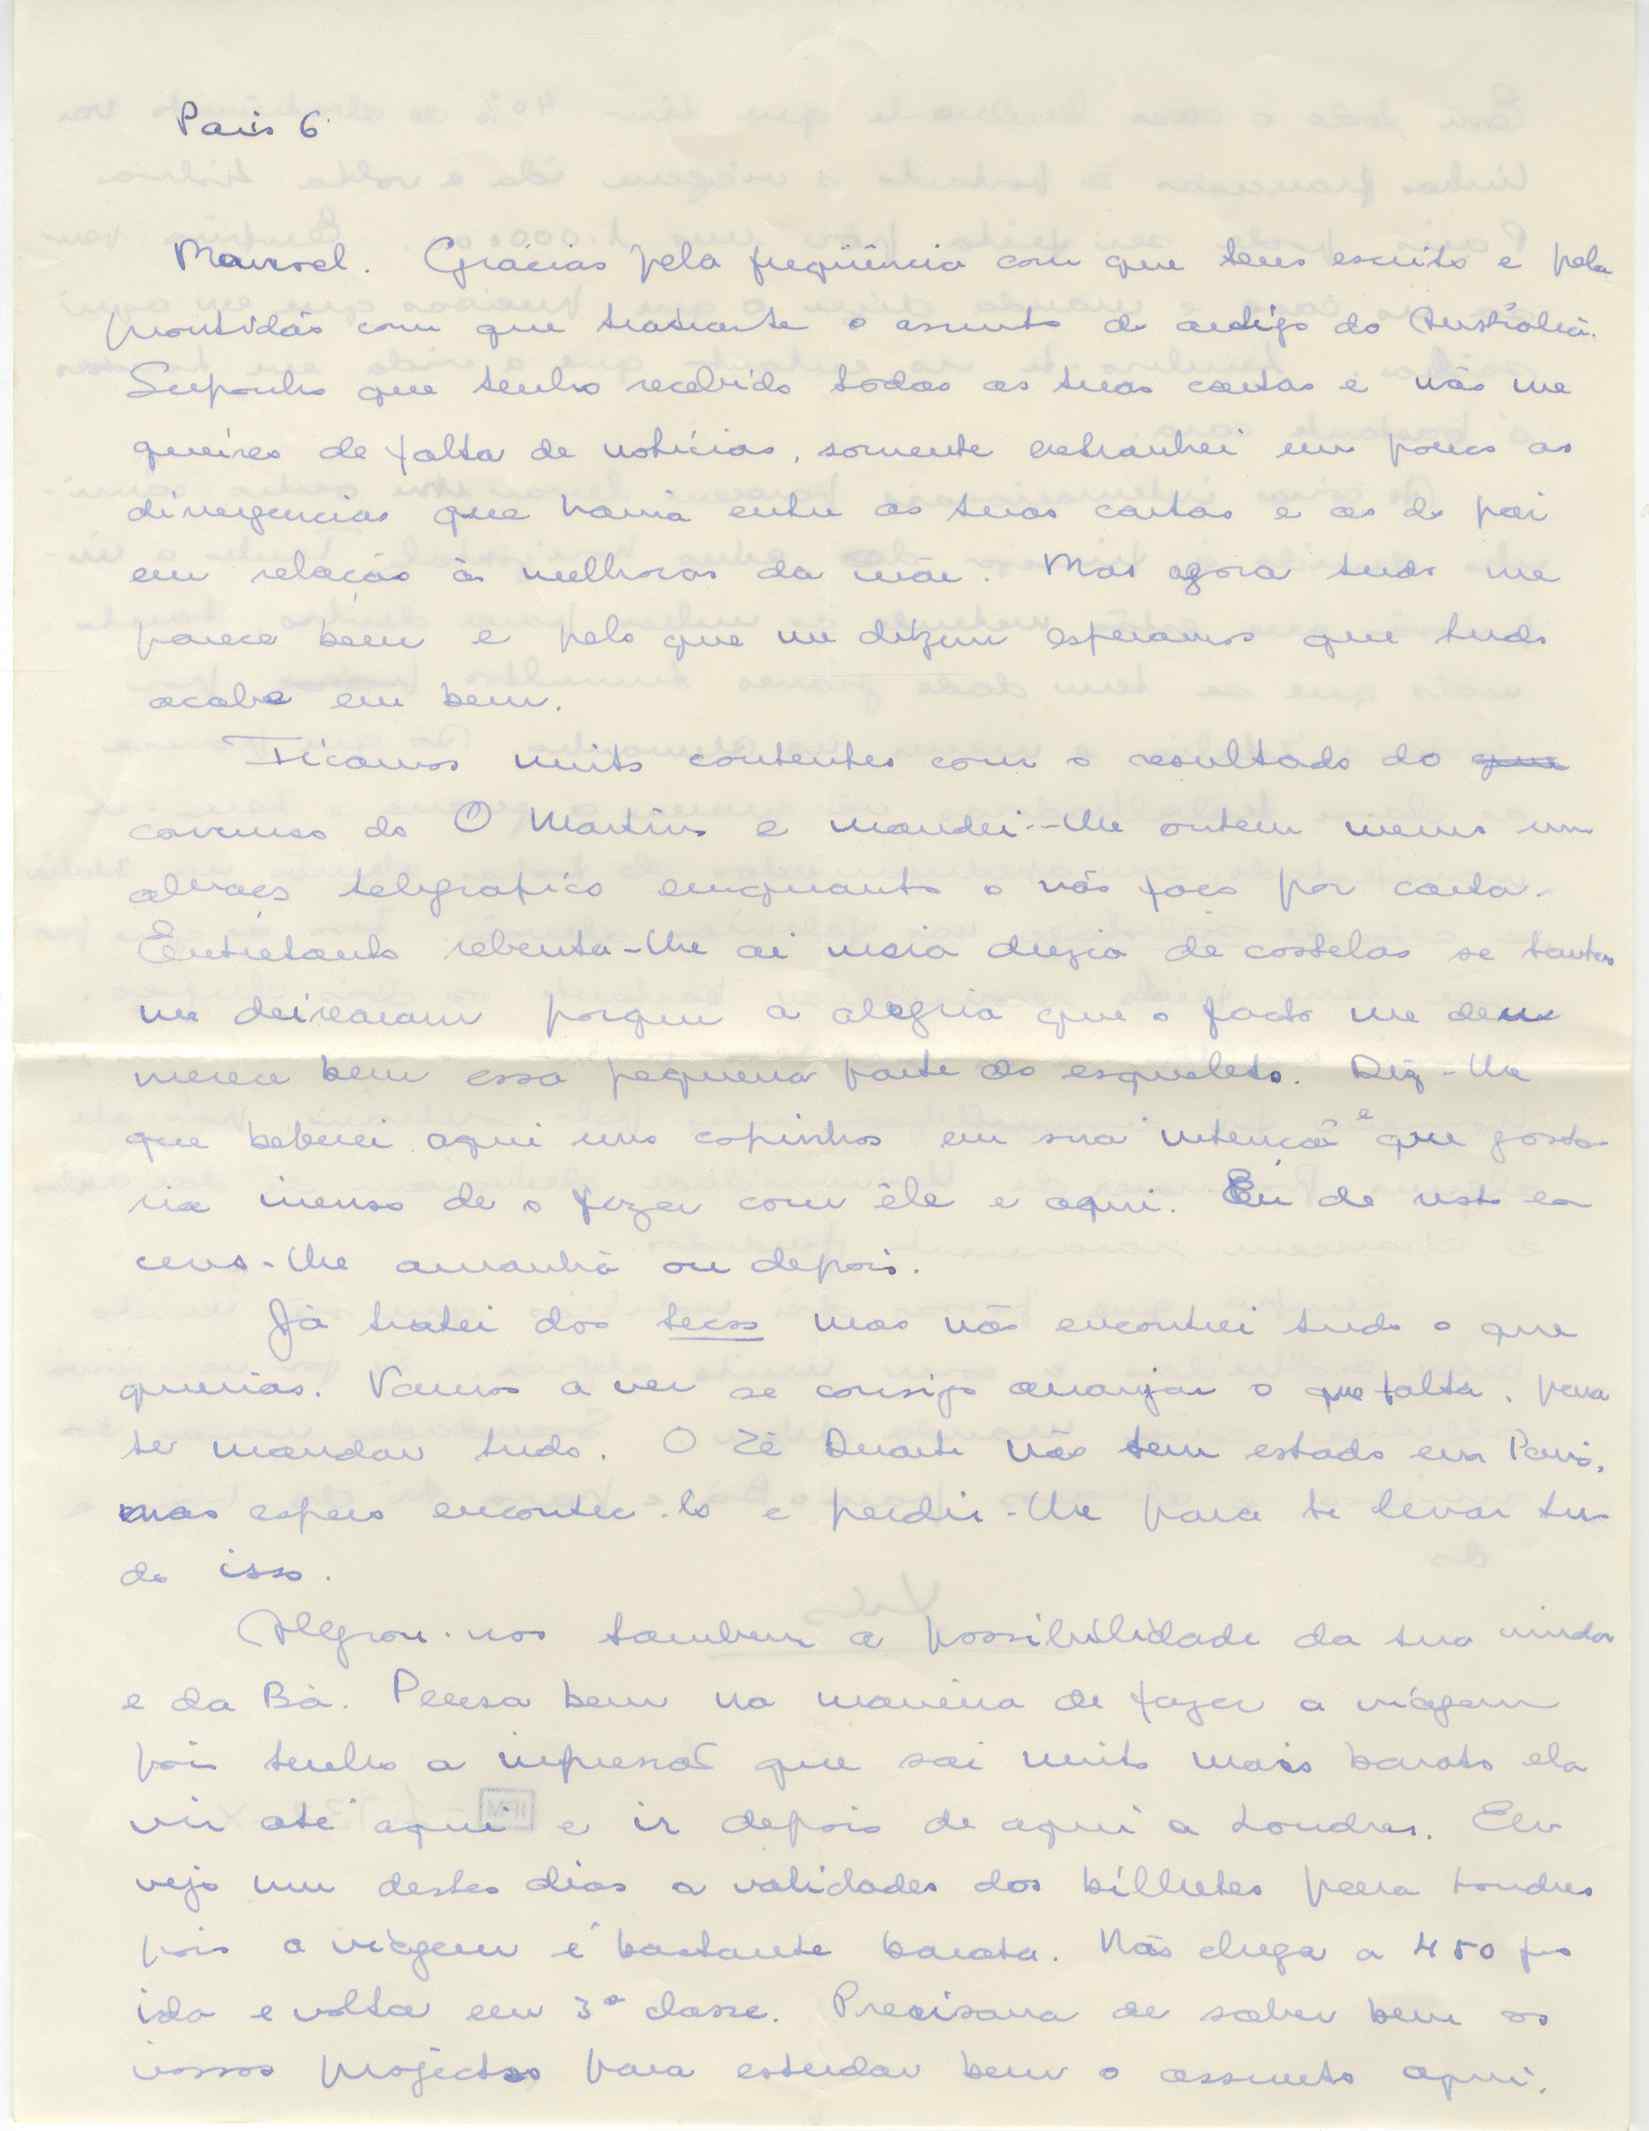 Paris 6.
Manuel. Gracias pela freqüência com que tens escrito e pela
prontidão com que trataste o assunto do artigo do Austrália.
Suponho que tenho recebido todas as tuas cartas e não me
queixo de falta de notícias, somente extranhei um pouco as
divergencias que havia entre as tuas cartas e as do pai
em relação às melhoras da mãe. Mas agora tudo me
parece bem e pelo que me dizem esperamos que tudo
acabe em bem.
Ficamos muito contentes com o resultado do que
concurso do O Martins e mandei-lhe ontem mesmo um
abraço telegrafico emquanto o não faço por carta.
Entretanto rebenta-lhe ai meia duzia de costelas se tantas
me deixaram porque a alegria que o facto me deu
merece bem essa pequena parte do esqueleto. Diz-lhe
que beberei aqui uns copinhos em sua intenção e que gosta-
ria imenso de o fazer com êle e aqui. de resto es
crevo-lhe amanhã ou depois.
Já tratei dos tecos mas não encontrei tudo o que
querias. Vamos a ver se consigo arranjar o que falta, para
te mandar tudo. O Zé Duarte não tem estado em Paris,
mas espero encontra-lo e pedir-lhe para te levar tu
do isso.
Alegrou-nos tambem a possibilidade da tua vinda
e da Bá. Pensa bem na maneira de fazer a viagem
pois tenho a impressão que sai muito mais barato ela
vir até aqui e ir depois de aqui a Londres. Eu
vejo um destes dias a validades dos bilhetes para Londres
pois a viagem é bastante barata. Não chega a 450
ida e volta em 3ª classe. Precisava de saber bem os
vossos projectos para estudar bem o assunto aqui.
VIII